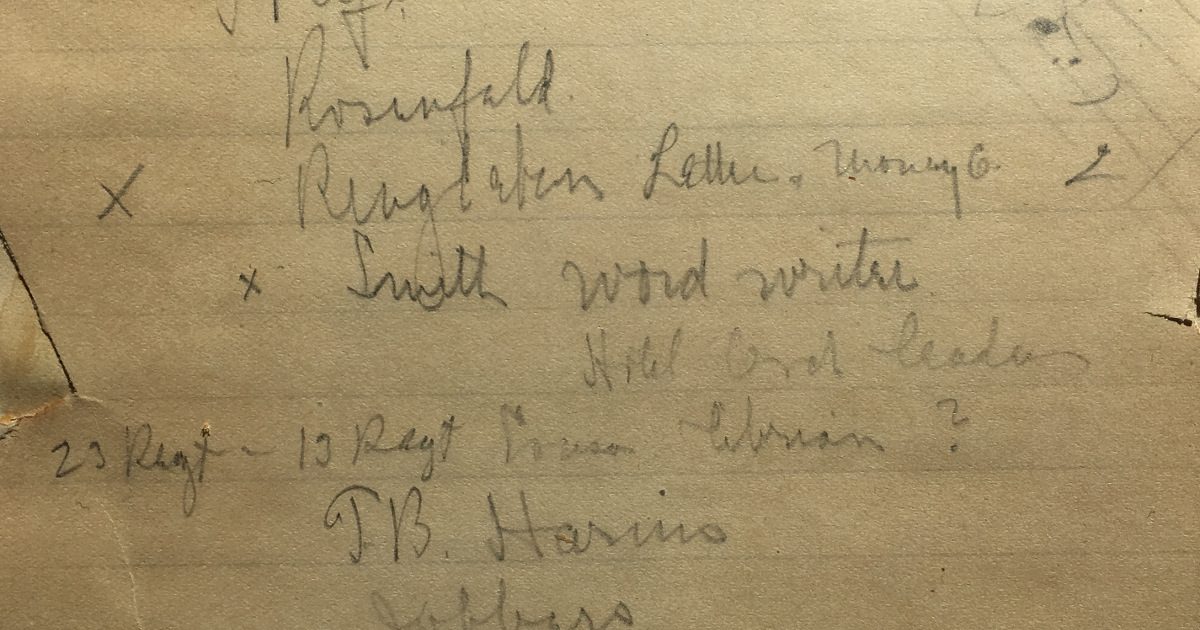 Rosenfeld.
X Ringleben Letter. Money O. 2
x Smith word writer
Hotel Orch Leaders
23 Regt - 13 Regt ?
T.B. Harms
Jobbers